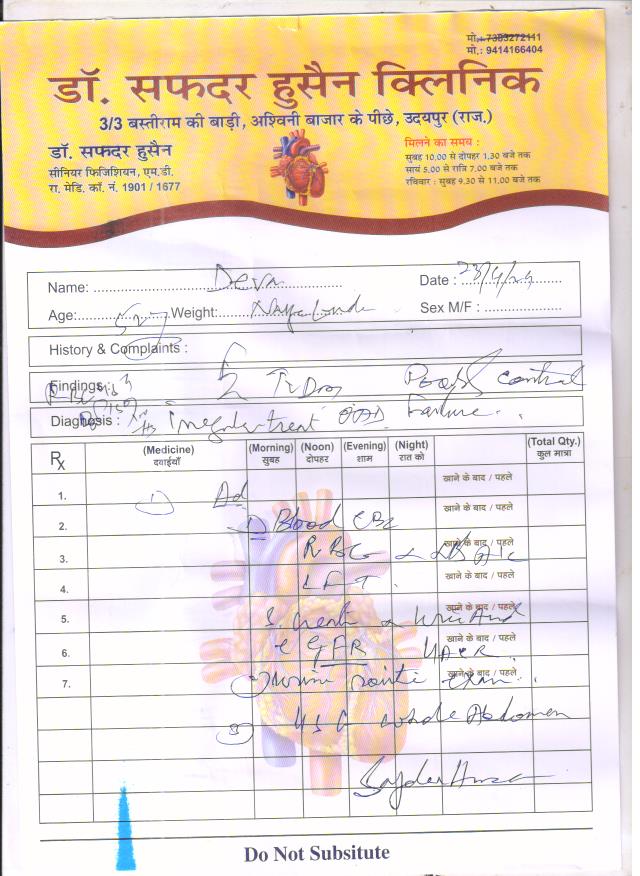 मो.: 7383272111
मो.: 9414166404
डॉ. सफदर हुसैन क्लिनिक
3/3 बस्तीराम की बाड़ी, अश्विनी बाजार के पीछे, उदयपुर (राज.)
डॉ. सफदर हुसैन
सीनियर फिजिशियन, एम.डी.
रा. मेडि. कॉ. नं. 1901 / 1677
मिलने का समय :
सुबह 10.00 से दोपहर 1.30 बजे तक
सायं 5.00 से रात्रि 7.00 बजे तक
रविवार : सुबह 9.30 से 11.00 बजे तक
Name: Deva Date : 23/4/24
Age: Weight: Sex M/F :
History & Complaints :
Findings : Poor control
Diagnosis : Irregular treat OAD Failure
Rx (Medicine) (Morning) (Noon) (Evening) (Night) (Total Qty.)
दवाईयाँ सुबह दोपहर शाम रात को कुल मात्रा
1. Ad खाने के बाद / पहले
2. 1) Blood CBC खाने के बाद / पहले
3. खाने के बाद / पहले
4. LFT खाने के बाद / पहले
5. S. Creat & Uric Acid खाने के बाद / पहले
6. eGFR UACR खाने के बाद / पहले
7. 2) Urine routine Exam. खाने के बाद / पहले
3) USG whole Abdomen
Do Not Subsitute